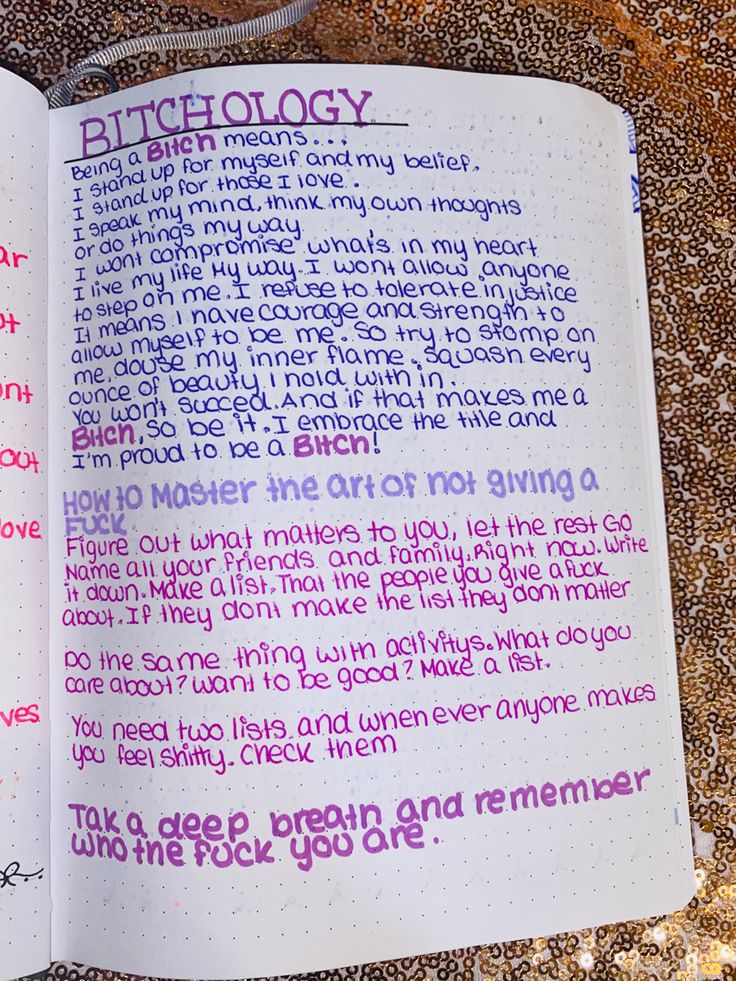 BITCHOLOGY
Being a Bitch means...
I stand up for myself and my belief.
I stand up for those I love.
I speak my mind, think my own thoughts
or do things my way
I wont compromise what's in my heart
I live my life My way. I wont allow anyone
to step on me. I refuse to tolerate injustice
It means I have courage and strength to
allow myself to be me. So try to stomp on
me, douse my inner flame. Squash every
ounce of beauty I hold with in.
You won't succed. And if that makes me a
Bitch, so be it. I embrace the title and
I'm proud to be a Bitch!
How to Master the art of not giving a
FUCK
Figure out what matters to you, let the rest Go
Name all your friends and family. Right now. Write
it down. Make a list. That the people you give a fuck
about. If they dont make the list they dont matter
Do the same thing with activitys. What do you
care about? Want to be good? Make a list.
You need two lists and when ever anyone makes
you feel shitty. Check them
Tak a deep breath and remember
who the fuck you are.
ar
nt
out
ove
ves